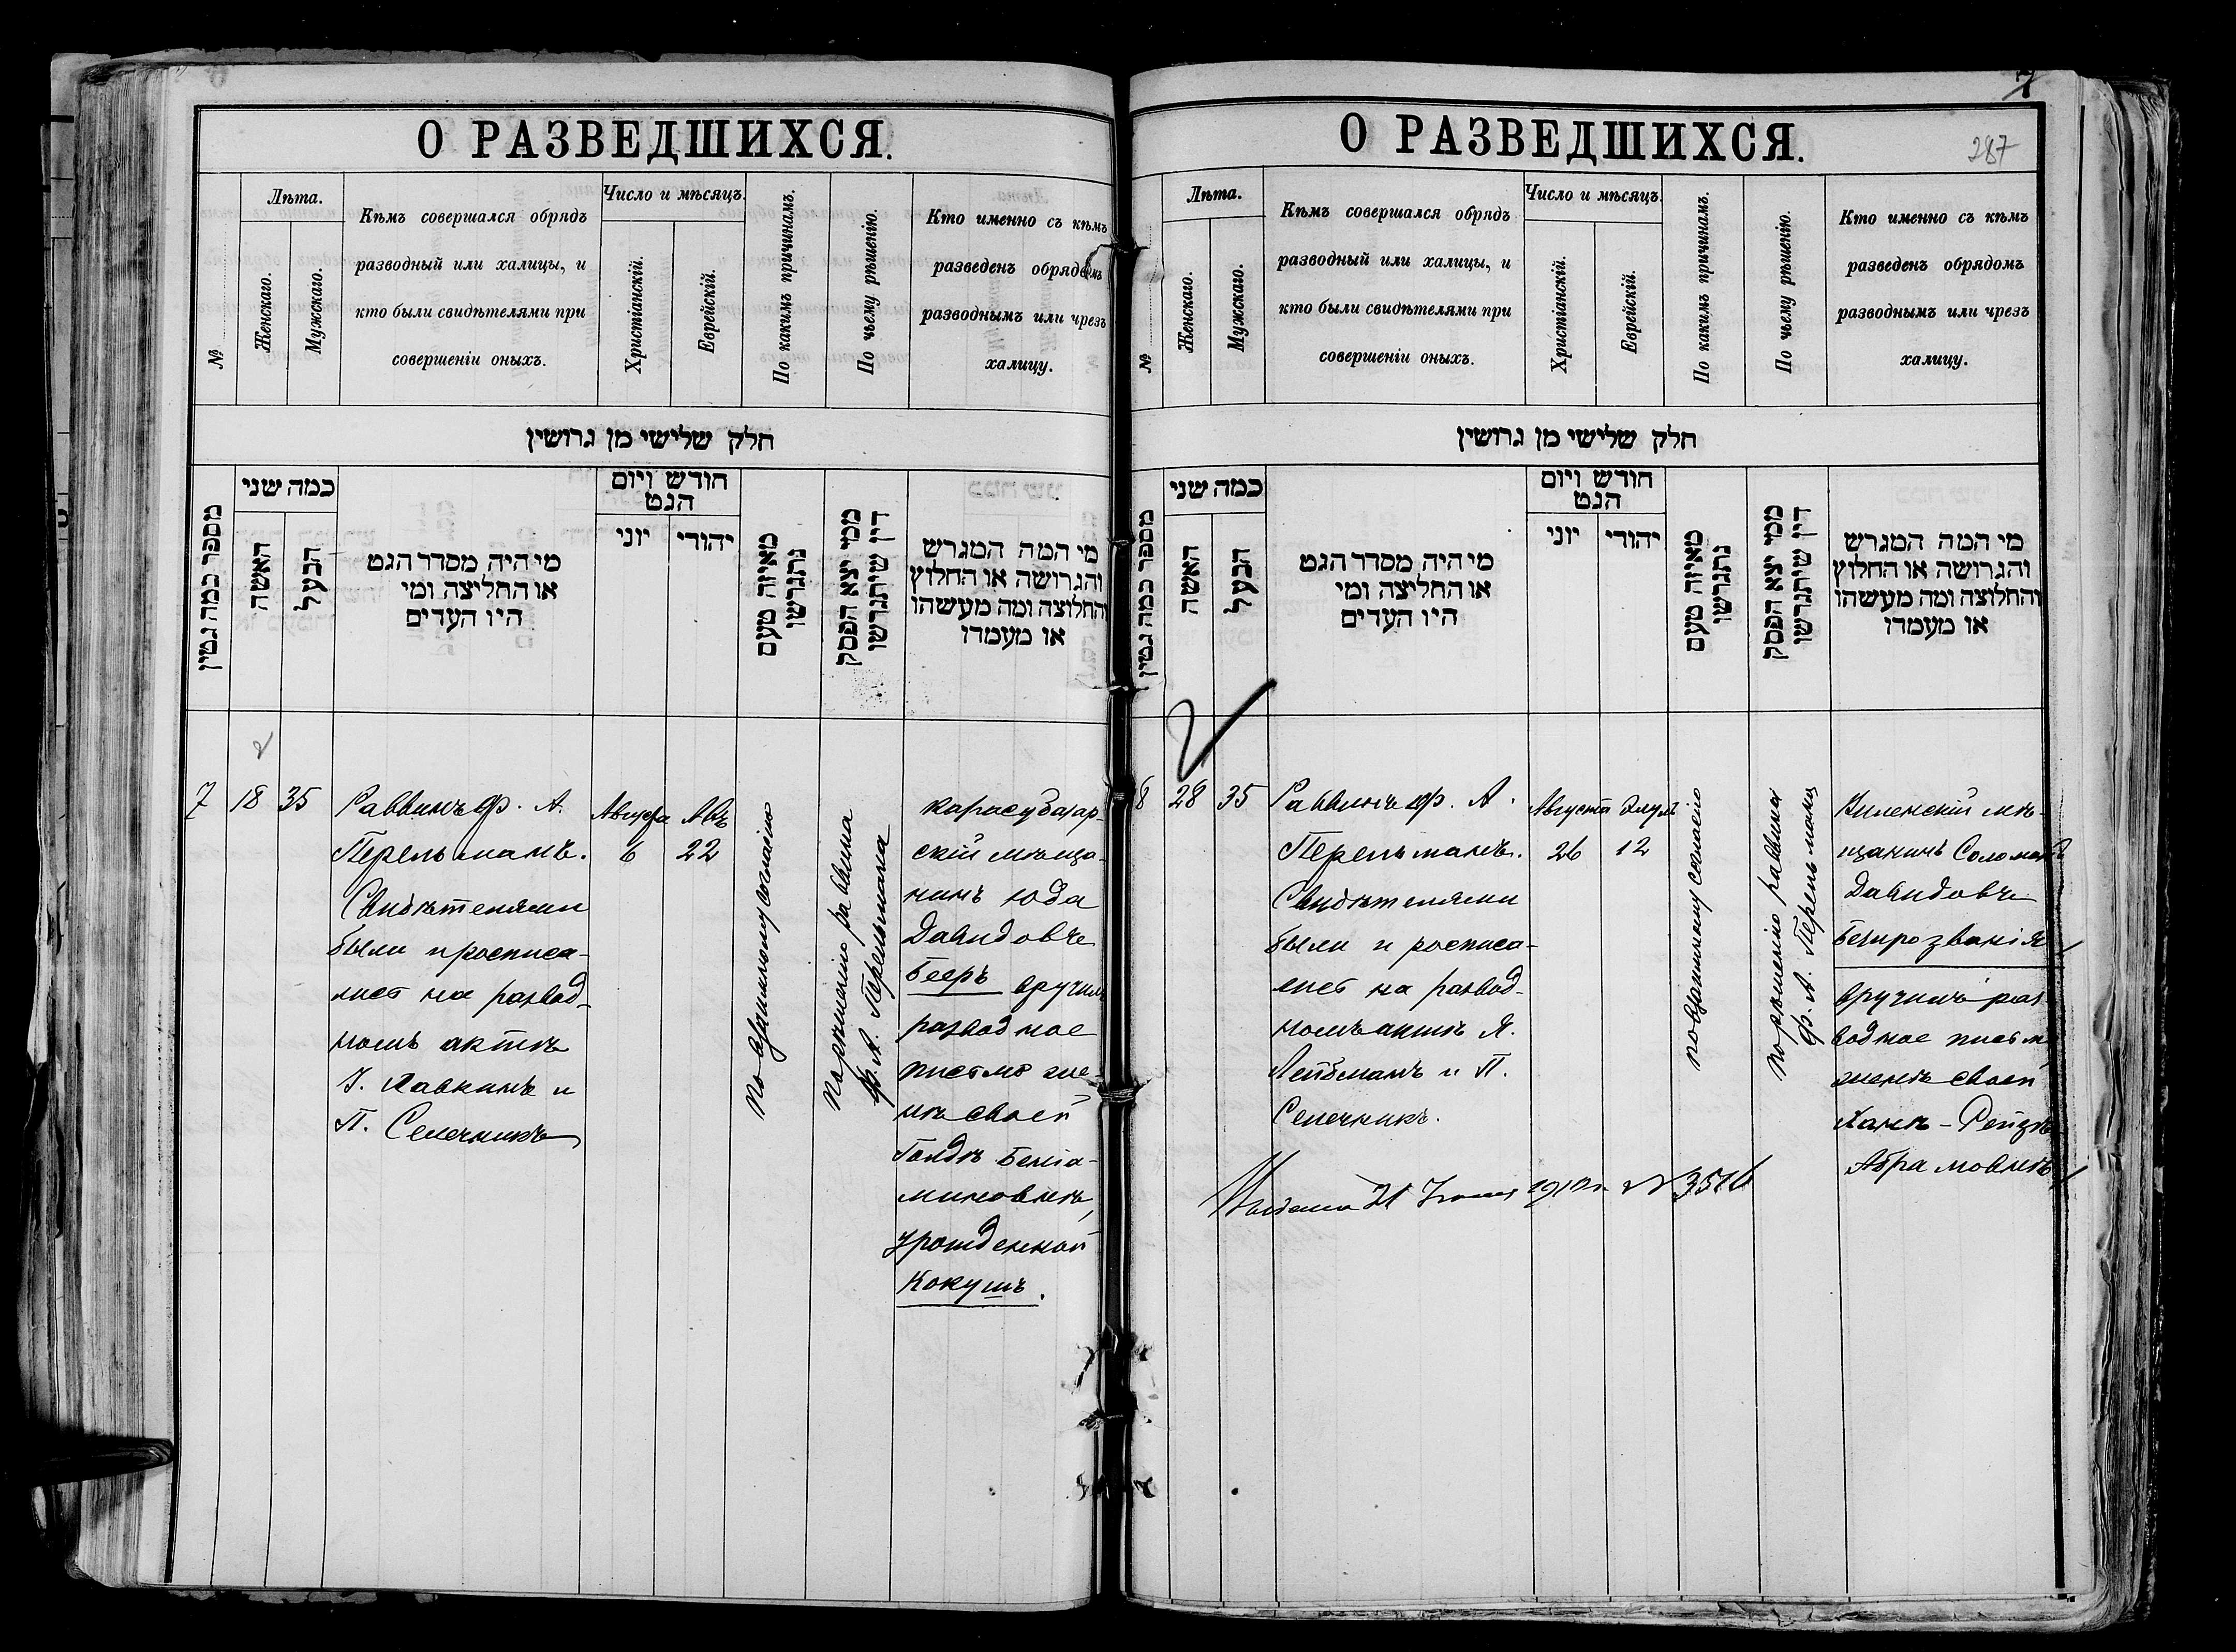 О РАЗВЕДШИХСЯ.
№
Лѣта.
Женскаго.
Мужскаго.
Кѣмъ совершался обрядъ
разводный или халицы, и
кто были свидѣтелями при
совершеніи оныхъ.
Число и мѣсяцъ.
Христіанскій.
Еврейскій.
По какимъ причинамъ.
По чьему рѣшенію.
Кто именно съ кѣмъ
разведенъ обрядомъ
разводнымъ или чрезъ
халицу.
חלק שלישי מן גרושין
מספר כמה גטין
כמה שני
האשה
הבעל
מי היה מסדר הגט
או החליצה ומי
היו העדים
חודש ויום
הגט
יוני
יהודי
מאיזה טעם
נתגרשו
ממי יצא הפסק
דין שיתגרשו
מי המה המגרש
והגרושה או החלוץ
והחלוצה ומה מעשהו
או מעמדו
7
18
35
Раввинъ Ф. А.
Перельманъ.
Свидѣтелями
были и росписа-
лись на развод-
номъ актѣ
І. Хавкинъ и
П. Селечникъ
Августа
6
Авъ
22
по взаимному согласію
по рѣшенію раввина
Ф. А. Перельмана
Карасубазар-
скій мѣща-
нинъ Юда
Давидовъ
Бееръ вручилъ
разводное
письмо же-
нѣ своей
Гольдѣ Беніа-
миновнѣ,
урожденной
Кокушъ.
О РАЗВЕДШИХСЯ.
7
287
№
Лѣта.
Женскаго.
Мужскаго.
Кѣмъ совершался обрядъ
разводный или халицы, и
кто были свидѣтелями при
совершеніи оныхъ.
Число и мѣсяцъ.
Христіанскій.
Еврейскій.
По какимъ причинамъ.
По чьему рѣшенію.
Кто именно съ кѣмъ
разведенъ обрядомъ
разводнымъ или чрезъ
халицу.
חלק שלישי מן גרושין
מספר כמה גטין
כמה שני
האשה
הבעל
מי היה מסדר הגט
או החליצה ומי
היו העדים
חודש ויום
הגט
יוני
יהודי
מאיזה טעם
נתגרשו
ממי יצא הפסק
דין שיתגרשו
מי המה המגרש
והגרושה או החלוץ
והחלוצה ומה מעשהו
או מעמדו
8
28
35
Раввинъ Ф. А.
Перельманъ.
Свидѣтелями
были и росписа-
лись на развод-
номъ актѣ Я.
Лейбманъ и П.
Селечникъ.
Августа
26
Элулъ
12
по взаимному согласію
по рѣшенію раввина
Ф. А. Перельмана
Виленскій мѣ-
щанинъ Соломонъ
Давидовъ
Безпрозванія
вручилъ раз-
водное письмо
женѣ своей
Ханѣ-Рейзѣ
Абрамовнѣ
21 1912 г. № 3516